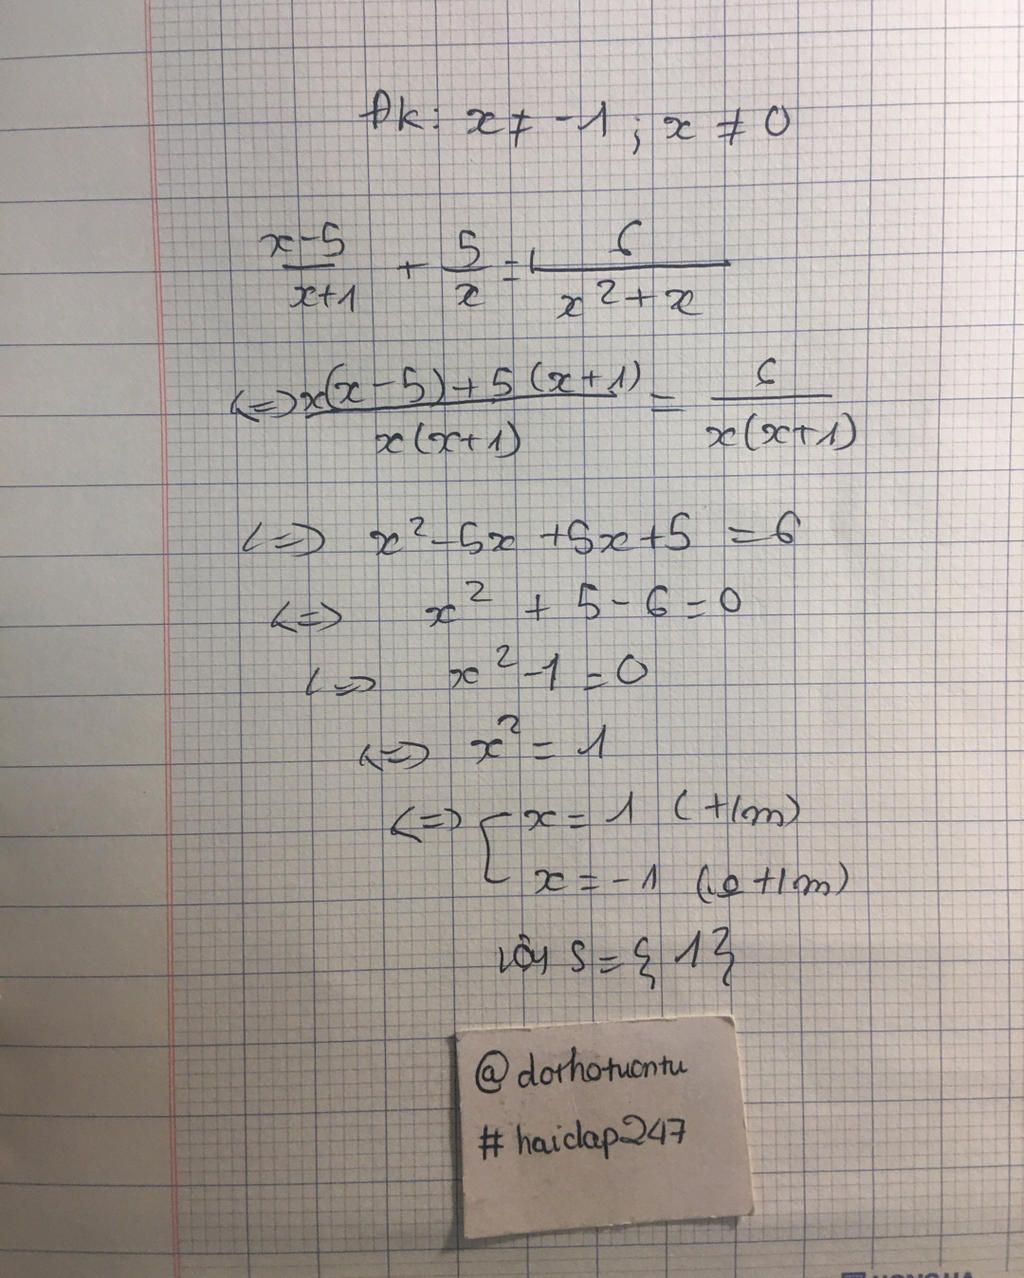 Đk: x ≠ -1 ; x ≠ 0
x-5/x+1 + 5/x = 6/x²+x
<=> x(x-5)+5(x+1)/x(x+1) = 6/x(x+1)
<=> x²-5x+5x+5 = 6
<=> x² + 5-6=0
<=> x²-1=0
<=> x² = 1
<=> [ x = 1 (t/m)
x = -1 (t/m)
vậy S = { 1 }
@dothotuantu
# haidap247